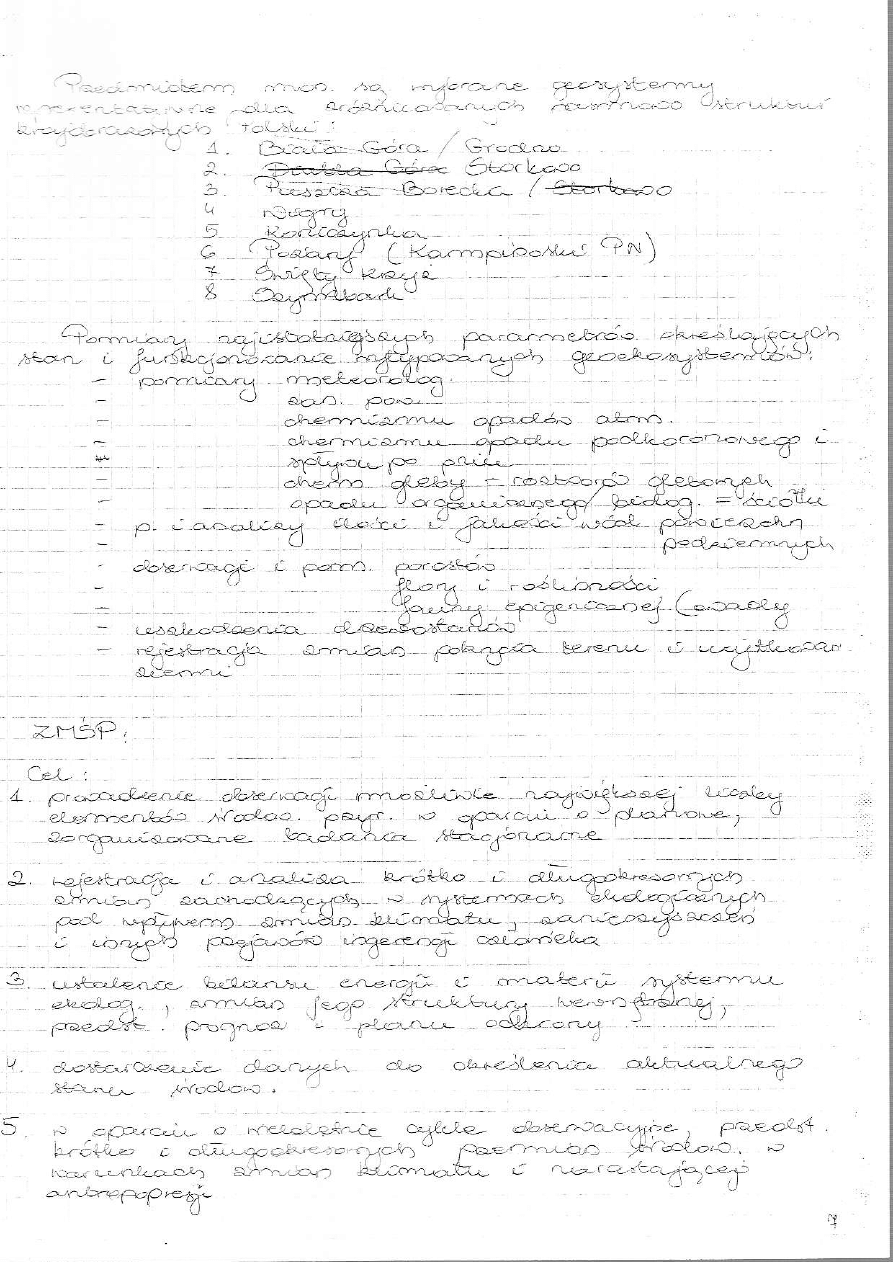 Przedmiotem mon. są wybrane geosystemy
reprezentatywne dla zróżnicowanych struktur
krajobrazowych Polski:
1. Biała Góra / Grodno
2. Storkowo
3. Puszcza Borecka / Storkowo
4 Wigry
5 Koniczynka
6 Pożary (Kampinoski PN)
7 Święty Krzyż
8 Szymbark
Pomiary najistotniejszych parametrów określających
stan i funkcjonowanie wytypowanych geoekosystemów:
- pomiary meteorolog.
- zan. pow.
- chemizmu opadów atm.
- chemizmu opadu podkoronowego i
spływu po pniu
- chem gleby = roztworów glebowych
- opadu organicznego/biolog. = ściółki
- p. i analizy ilości i jakości wód powierzchn
- podziemnych
- obserwacji i pom. porostów
- flory i roślinności
- fauny epigeicznej (owady
- uszkodzenia drzewostanów
- rejestracja zmian pokrycia terenu i użytkowan
ziemi
ZMŚP:
Cel:
1. prowadzenie obserwacji możliwie największej liczby
elementów środow. przyr. w oparciu o planowe,
zorganizowane badania stacjonarne
2. rejestracja i analiza krótko i długookresowych
zmian zachodzących w systemach ekologicznych
pod wpływem zmian klimatu, zanieczyszczeń
i innych przejawów ingerencji człowieka
3. ustalenie bilansu energii i materii systemu
ekolog., zmian jego struktury wewnętrznej,
przedst. prognoz i planu ochrony
4. dostarczenie danych do określenia aktualnego
stanu środow.
5. w oparciu o wieloletnie cykle obserwacyjne, przedst.
krótko i długookresowych przemian środow. w
warunkach zmian klimatu i narastającej
antropopresji
7